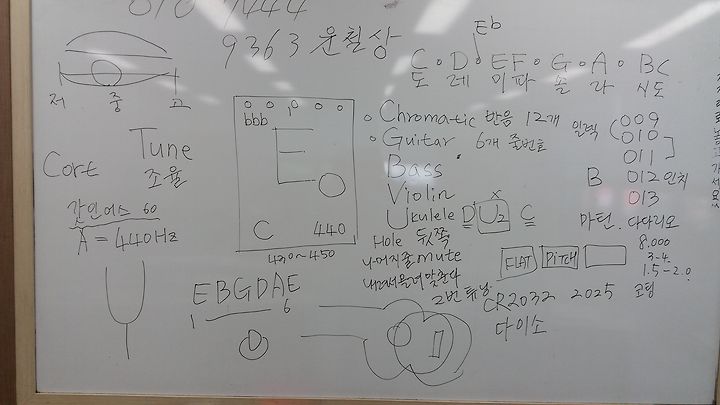 010 9444
9363 윤철상
Eb
C D EF G A BC
도 레 미파 솔 라 시도
저 중 고
bbb
E
C 440
430~450
Cort
Tune
조율
A = 440Hz
Chromatic 반음 12개
Guitar 6개 줄번호
Bass
Violin
Ukulele D U2 C
x
Hole 뒷쪽
나머지줄 mute
2번 튜닝
009
010
011
B 012 인치
013
마틴. 다다리오
8.000
3-4.
1.5-2.0
FLAT PITCH
EBGDAE
1 6
D
CR2032 2025 코팅
다이소